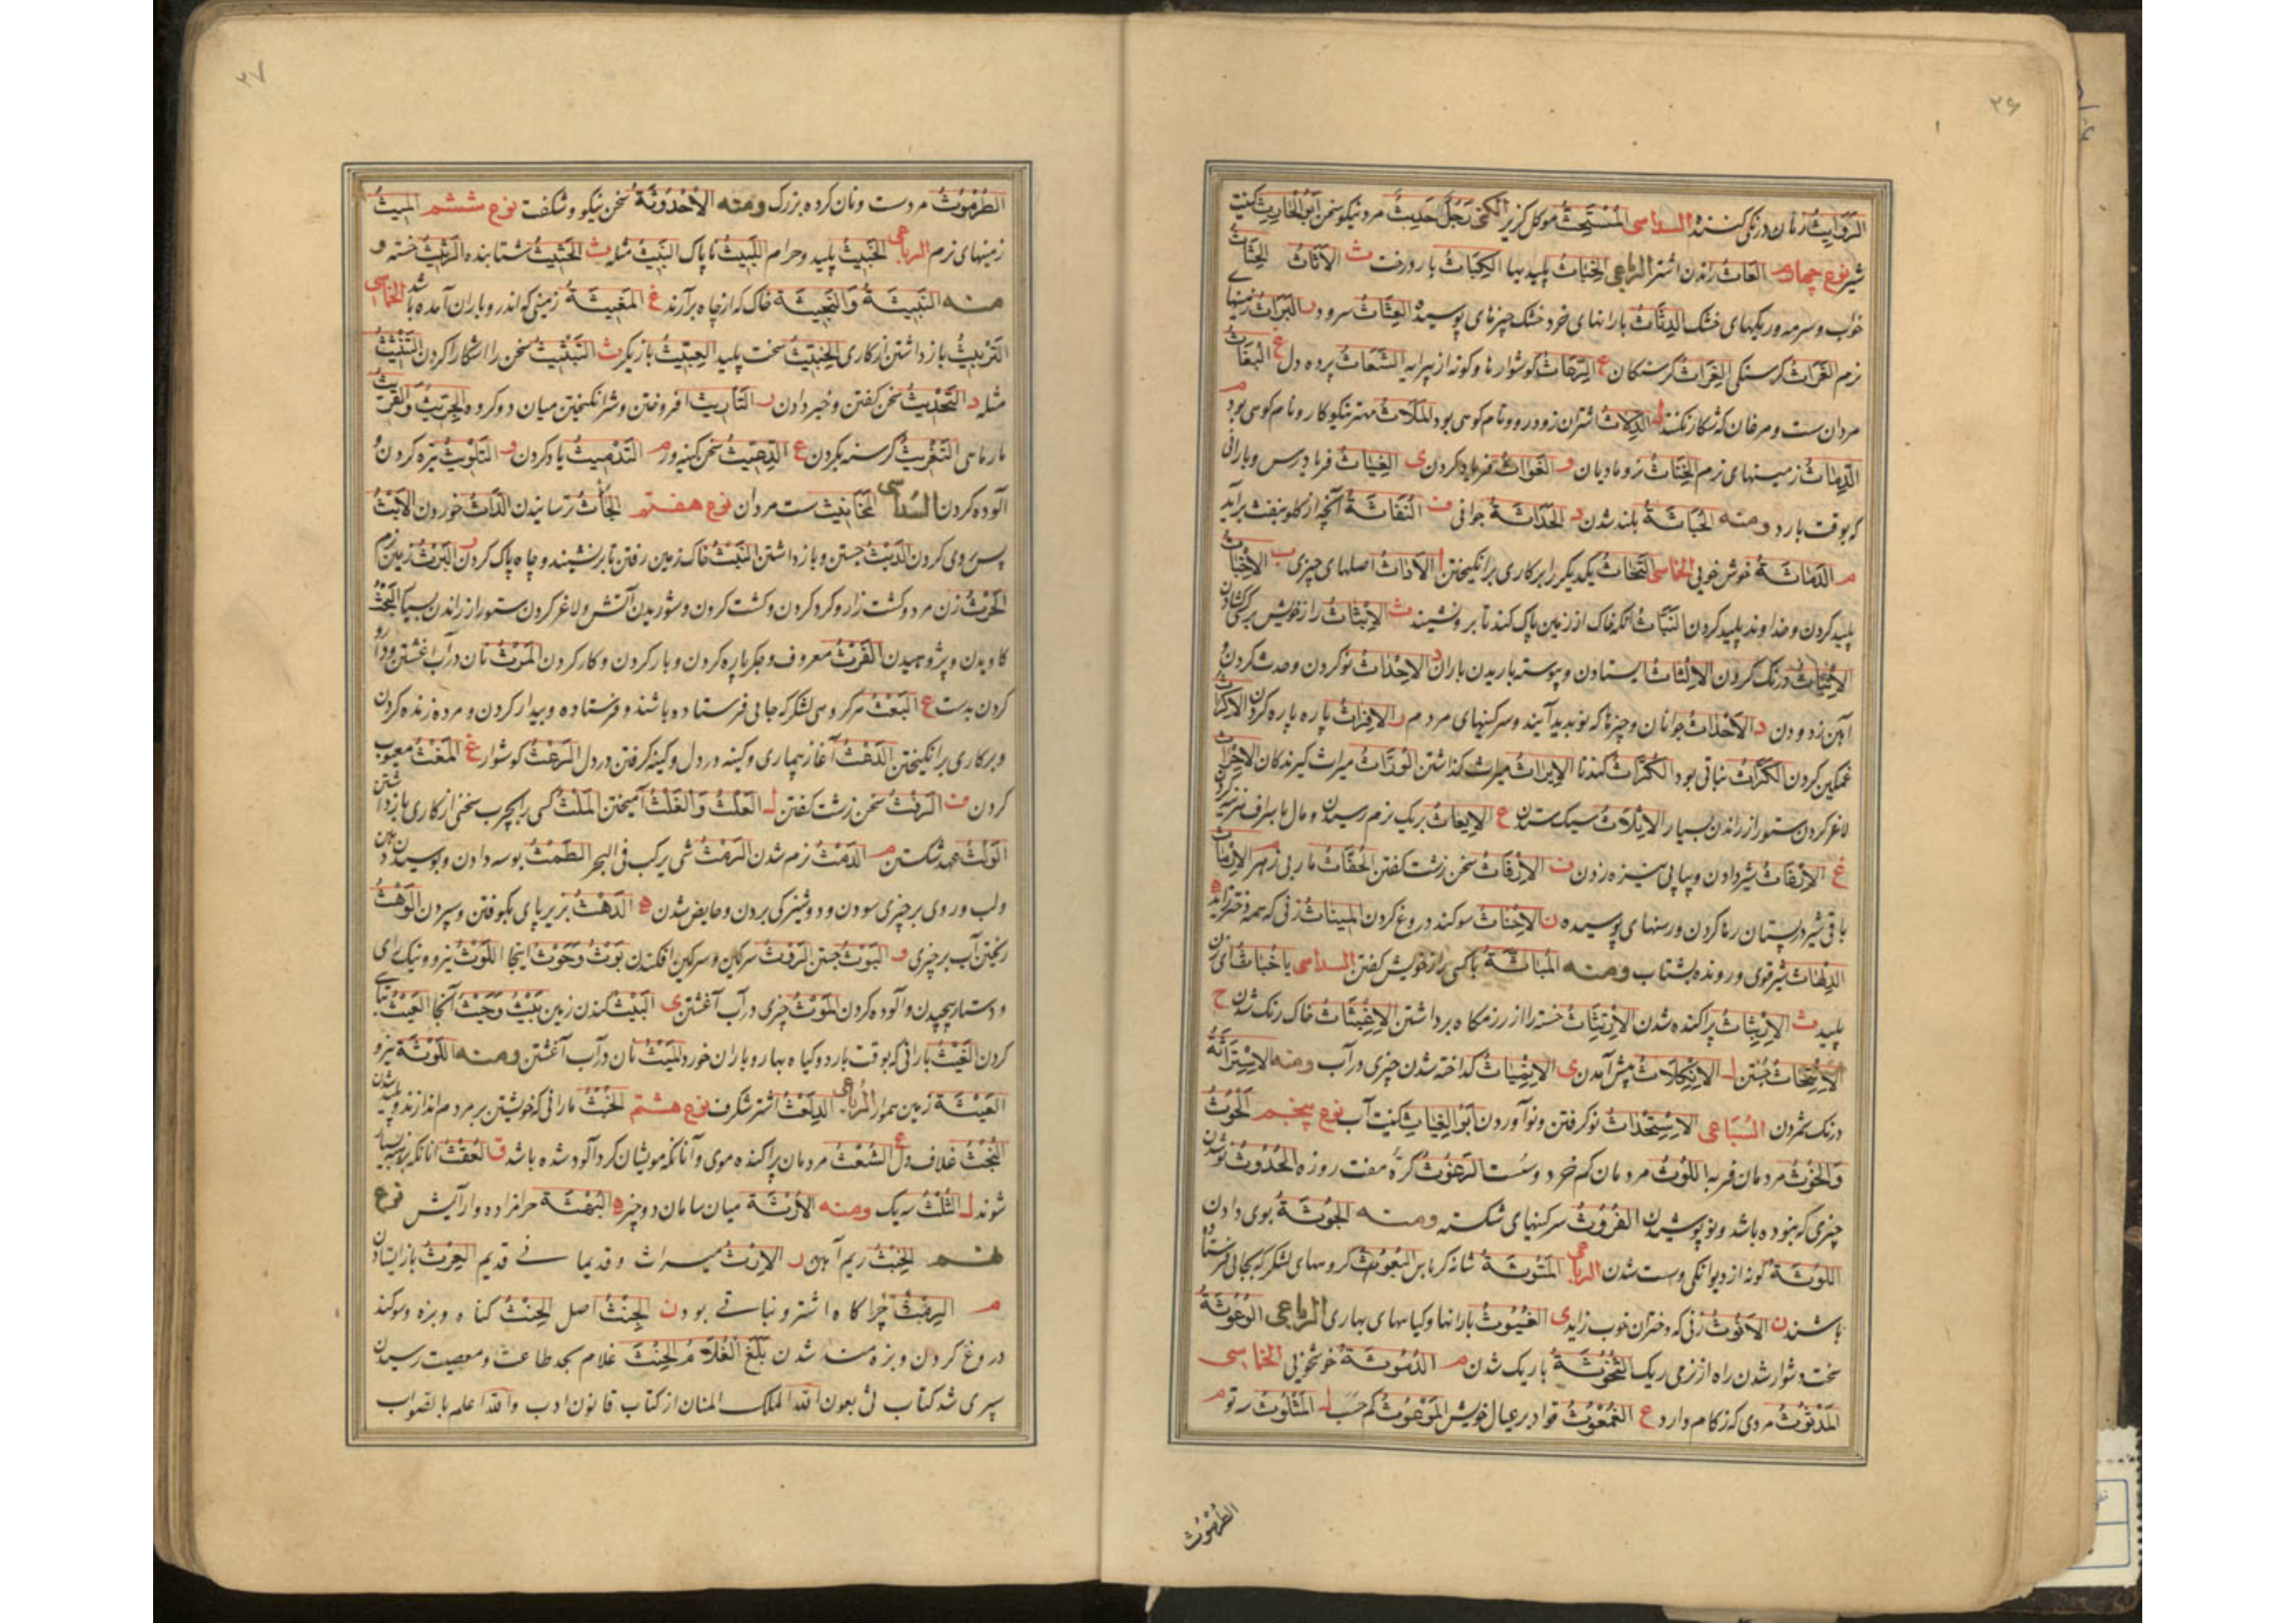 ۲۶
الرَّوَایِثُ زنان درنگی کنندهٔ السداسی المُسْتَحِثُّ موکل کزیر الکنی رَجُلٌ حَدِیثٌ مرد نیکو سخن اَبُو الْحَارِثِ کنیت
شیر نوع چهارم العَاثُ راندن اشتر الرباعی الخِبَاثُ پلیدیها الکَبَاثُ بار درخت ث الاَثَاثُ الحِثَاثُ
خواب و سرمه و ریکهای خشک الدِثَاثُ بارانهای خرد خشک چیزهای پوسیده العِثَاثُ سرود ر البَرَاثُ زمینهای
نرم الغَرَاثُ کرسنکی الغِرَاثُ کرسنکان ع الرِّعَاثُ کوشوارها و کونه از پیرایه الشَّغَاثُ پرده دل غ البُغَاثُ
مردان سست و مرغان که شکار نکنند ل الدِلَاثُ اشتران زودرو و نام کوهی بود المَلَاثُ مهتر نیکوکار و نام کوهی بود م
الدِّمَاثُ زمینهای نرم الخِنَاثُ نر و مادیان و الغَوَاثُ فریاد کردن ی الغِیَاثُ فریادرس و بارانی
که بوقت بارد ومنه الخَبَاثَةُ پلید شدن د الحَدَاثَةُ جوانی ف النُفَاثَةُ آنچه از کلو بنفث برآید
م الدَمَاثَةُ خوش خوئی الخماسی التَّحَاثُّ یکدیگر را بر کاری برانکیختن ا الاَرَاثُ اصلهای چیزی ب الاِخْبَاثُ
پلید کردن و خداوند پلید کردن النَبَّاثُ آنکه خاک از زمین پاک کند تا بر و نشیند ث الاِبْثَاثُ راز خویش بر کسی کشادن
الاِلْبَاثُ درنک کردن الاِلْثَاثُ ایستادن و پیوسته باریدن باران د الاِحْدَاثُ نو کردن و حدث کردن و
آهن زدودن د الاَحْدَاثُ جوانان و چیزها که نو پدید آیند و سرکینهای مردم ر الاِفْرَاثُ پاره پاره کردن الاِکْرَاثُ
غمکین کردن الکُرَّاثُ نباتی بود الکُرَّاثُ کندنا الاِیرَاثُ میراث کذاشتن الوُرَّاثُ میراث کیرندکان الاِحْرَاثُ
لاغر کردن ستور از راندن بسیار الاِثْلَاثُ سیک ستدن ع الاِیعَاثُ بریک نرم رسیدن و مال باسراف هزینه کردن
غ الاِرْغَاثُ شیر دادن و پیاپی نیزه زدن ف الاِرْفَاثُ سخن زشت کفتن الحُفَّاثُ ماری بی زهر م الاِرْمَاثُ
باقی شیر در پستان رها کردن و رسنهای پوسیده ن الاِحْنَاثُ سوکند دروغ کردن المِینَاثُ زنی که همه دختر زاید ه
الدِلْهَاثُ شیر قوی و رونده بشتاب ومنه المُبَاثَّةُ با کسی راز خویش کفتن السداسی یا خَبَاثِ ای زن
پلید ث الاِنْبِثَاثُ پراکنده شدن الاِرْتِثَاثُ خسته را از رزمکاه برداشتن الاِغْبِثَاثُ خاک رنک شدن ح
الاِبْتِحَاثُ جستن ل الاِنْکِلَاثُ پیش آمدن ی الاِنْمِیَاثُ کداخته شدن چیزی در آب ومنه الاِسْتِرَاثَةُ
درنک شمردن السُّبَاعی الاِسْتِحْدَاثُ نو کرفتن و نو آوردن اَبُو الغِیَاثِ کنیت آب نوع پنجم الحَوْثُ
وَالخَوْثُ مردمان فربه اللُوْثُ مردمان کم خرد و سست الرَغُوثُ کرهٔ هفت روزه الحُدُوثُ نو شدن
چیزی که نبوده باشد و نو پوشیدن الفُرُوثُ سرکینهای شکسته ومنه الجُوثَةُ بوی دادن
اللُوثَةُ کونه از دیوانکی و سست شدن الرباعی المَثُوثَةُ شانه کرباس البُعُوثُ کروههای لشکر که بجائی فرستاده
باشند ن الاَنُوثُ زنی که دختران خوب زاید ی الغُیُوثُ بارانها و کیاههای بهاری الرباعی الوُعُوثَةُ
سخت و دشوار شدن راه از نرمی ریک الشُخُوثَةُ باریک شدن م الدُمُوثَةُ خوشخوئی الخماسی
المَدْثُوثُ مردی که زکام دارد ع المَوْعُوثُ کم حسب ل المَثْلُوثُ رتو م
الطُرْمُوثُ
۲۷
الطُرْمُوثُ مرد سست و نان کرده بزرک ومنه الاُحْدُوثَةُ سخن نیکو و شکفت نوع ششم المِیثُ
زمینهای نرم الرباعی الخَبِیثُ پلید و حرام اللَبِیثُ ناپاک النَبِیثُ مثله ث الحَثِیثُ شتابنده الرَثِیثُ خسته و
منه النَبِیثَةُ وَالنَجِیثَةُ خاک که از چاه برآرند غ المَغِیثَةُ زمینی که اندر و باران آمده باشد الخماسی
التَرْبِیثُ باز داشتن از کاری الخِبِّیثُ سخت پلید العِبِّیثُ بازیکر ث التَبْثِیثُ سخن را اشکارا کردن التَنْثِیثُ
مثله د التَحْدِیثُ سخن کفتن و خبر دادن ر التَأْرِیثُ افروختن و شر انکیختن میان دو کروه الجِرِّیثُ وَالقِرِّیثُ
مارماهی التَغْرِیثُ کرسنه بکردن ع م التَدْمِیثُ یاد کردن و التَلْوِیثُ تیره کردن و
آلوده کردن السداسی المَخَانِیثُ سست مردان نوع هفتم الجَأْثُ ترسانیدن الدَأْثُ خوردن الاَبْثُ
پس روی کردن الرَبْثُ جستن و باز داشتن النَبْثُ خاک زمین رفتن تا بر نشینند و چاه پاک کردن ر البَرْثُ زمین نرم
الحَرْثُ زن مرد و کشت زار و کرد کردن و کشت کردن و شوریدن آتش و لاغر کردن ستور از راندن بسیار البَحْثُ
کاویدن و پژوهیدن الفَرْثُ معروف و جکر پاره کردن و بار کردن و کار کردن المَرْثُ نان در آب آغشتن و دارو
کردن بدست ع البَعْثُ مر کروهی لشکر که جائی فرستاده باشند و فرستاده و بیدار کردن و مرده زنده کردن
و بر کاری برانکیختن الدَعْثُ آغاز بیماری و کینه در دل و کینه کرفتن در دل الرَعْثُ کوشوار غ المَغْثُ معیوب
کردن ف الرَفْثُ سخن زشت کفتن ل العَلْثُ وَالغَلْثُ آمیختن المَلْثُ کسی را بچرب سخنی از کاری باز داشتن
الوَلْثُ عهد شکستن م الدَمْثُ نرم شدن الرَمْثُ شی یرکب فی البحر الطَمْثُ بوسه دادن و بوسیدن دهن
ولب و روی بر چیزی سودن و دوشیزکی بردن و حایض شدن ه الدَهْثُ بزیر پای بکوفتن و سپردن الوَهْثُ
ریختن آب بر چیزی و البَوْثُ جستن الرَوْثُ سرکین و سرکین افکندن بَوْثُ وَحَوْثُ اینجا اللَوْثُ نیرو و نیک رای
و دستار پیچیدن و آلوده کردن المَوْثُ چیزی در آب آغشتن ی البَیْثُ کندن زمین بَیْثُ وَحَیْثُ آنجا العَیْثُ تباهی
کردن الغَیْثُ بارانی که بوقت بارد و کیاه بهار و باران خورد المَیْثُ نان در آب آغشتن ومنه اللَوْثَةُ نیرو
العَیْثَةُ زمین هموار الرباعی الدِلَعْثُ اشتر شکرف نوع هشتم الخُبْثُ مارانی که خویشتن بر مردم اندازند و پلید شدن
البُحْثُ غلاف دل ع الشُعْثُ مردمان پراکنده موی و آنانکه مویشان کرد آلود شده باشد ق العُقْثُ آنانکه برهنه بسیار
شوند ل الثُلْثُ سه یک ومنه الاُرْثَةُ میان سامان دو چیز ه البُهْثَةُ حرامزاده و آرایش نوع
نهم الخِبْثُ ریم آهن ر الاِرْثُ میراث و قدیما فی قدیم العِرْثُ باز ایستادن
م الرِمْثُ چراکاه اشتر و نباتی بود ن الجِنْثُ اصل الحِنْثُ کناه و بزه و سوکند
دروغ کردن و بزه مند شدن بَلَغَ الغُلَامُ الحِنْثَ غلام بحد طاعت و معصیت رسیدن
سپری شد کتاب ثی بعون الله الملک المنان از کتاب قانون ادب والله اعلم بالصواب